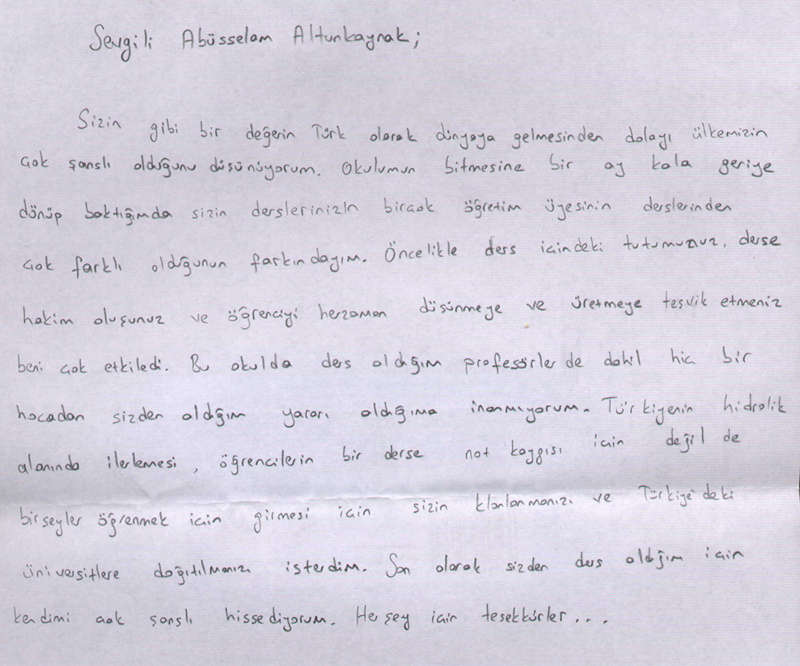 Sevgili Abüsselam Altunkaynak;
Sizin gibi bir değerin Türk olarak dünyaya gelmesinden dolayı ülkemizin
çok şanslı olduğunu düşünüyorum. Okulumun bitmesine bir ay kala geriye
dönüp baktığımda sizin derslerinizin birçok öğretim üyesinin derslerinden
çok farklı olduğunun farkındayım. Öncelikle ders içindeki tutumunuz, derse
hakim oluşunuz ve öğrenciyi herzaman düşünmeye ve üretmeye teşvik etmeniz
beni çok etkiledi. Bu okulda ders aldığım profesörler de dahil hiç bir
hocadan sizden aldığım yararı aldığıma inanmıyorum. Türkiyenin hidrolik
alanında ilerlemesi, öğrencilerin bir derse not kaygısı için değil de
birşeyler öğrenmek için girmesi için sizin klonlanmanızı ve Türkiye'deki
üniversitlere dağıtılmanızı isterdim. Son olarak sizden ders aldığım için
kendimi çok şanslı hissediyorum. Herşey için teşekkürler...